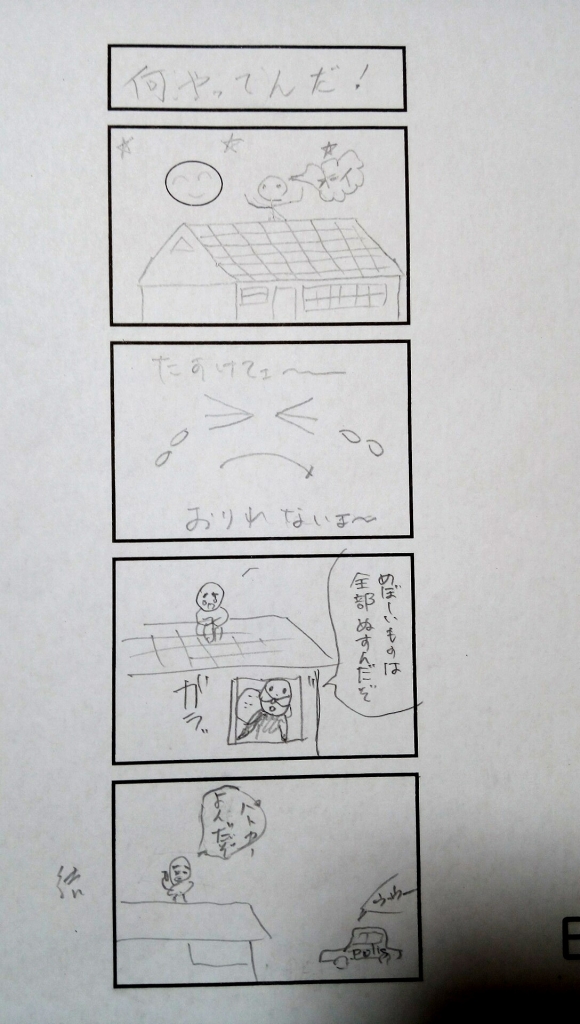 何やってんだ!
オーイ
たすけてェ〜
おりれないよ〜
めぼしいものは
全部ぬすんだぞ
ガラッ
パトカー
よんだぞ
ウウー
Polis